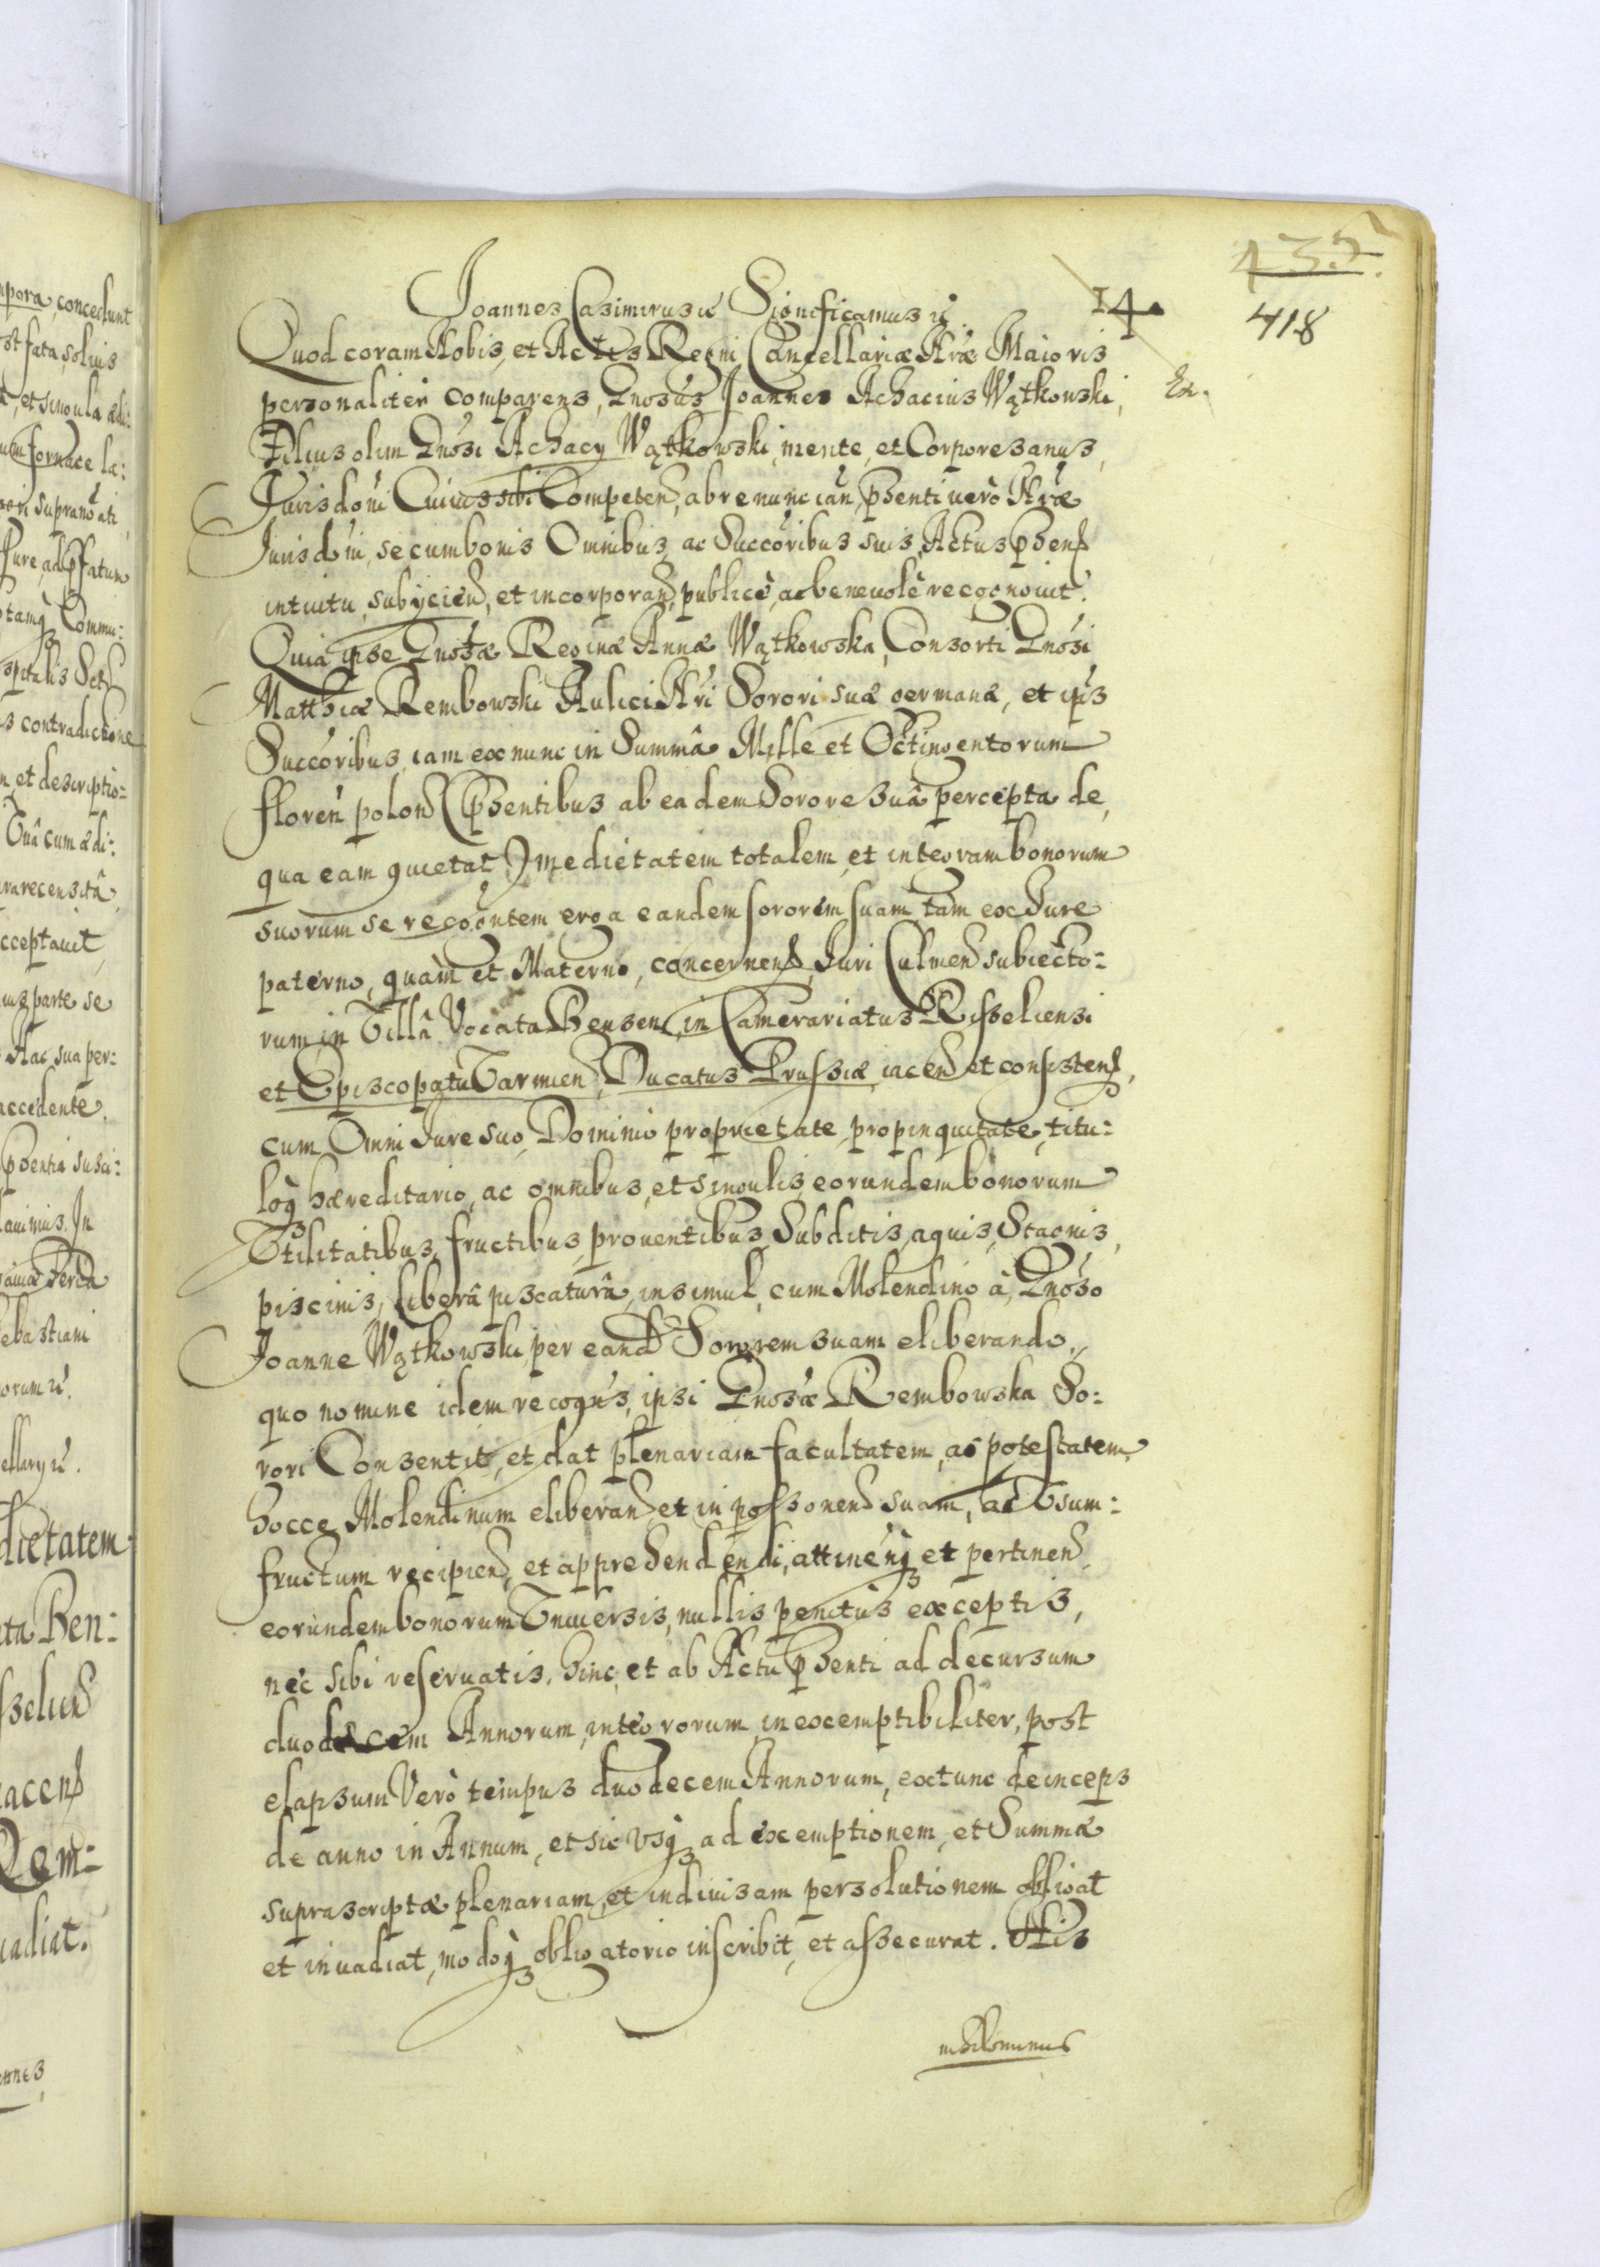 435.
418
14.
Ex.
Joannes Casimirus etc Significamus etc
Quod coram Nobis, et Actis Regni Cancellariæ Nræ Maioris
personaliter comparens, Gnosus Joannes Achacius Wątkowski,
Filius olim Gnosi Achacy Wątkowski, mente, et Corpore sanus,
Jurisdōni Cuiuis sibi Competen, abrenuncian, pñsenti uerò Nræ
Jurisdōni, se cum bonis Omnibus, ac Succoribus suis, Actus pñsen
intuitu, subÿcien, et incorporan, publicè, ac beneuolè recognouit.
Quia ipse Gnosæ Reginæ Annæ Wątkowska, Consorti Gnosi
Matthiæ Rembowski Aulici Nri Sorori suæ germanæ, et ipìs
Succoribus, iam ex nunc in Summâ Mille et Octingentorum
floren polon (pñsentibus ab eadem Sorore suâ percepta de,
qua eam quietat) medietatem totalem, et integram bonorum
suorum se recogntem erga eandem sororem suam tam ex Jure
paterno, quàm et Materno, concernen, Juri Culmen subiecto:
rum, in Villâ Vocata Bensen, in Camerariatus Risseliensi
et Episcopatu Varmien, Ducatus Prussiæ, iacen et consisten,
cum Omni Jure suo, Dominio proprietate, propinquitate, titu:
loq hæreditario, ac omnibus, et singulis, eorundem bonorum
Vtilitatibus, fructibus, prouentibus, Subditis, aquis, Stagnis,
piscinis, liberâ piscaturâ, insimul, cum Molendino à, Gnoso
Joanne Wątkowski, per eand Sororem suam eliberando,
quo nomine idem recogns, ipsi Gnosæ Rembowska So:
rori Consentit, et dat plenariam facultatem, ac potestatem
hocce Molendinum eliberan, et in possonen suam, ac Vsum:
fructum recipien, et apprehendendi, attinenq et pertinen
eorundem bonorum Vniuersis, nullis penitus exceptis,
nec sibi reseruatis, hinc, et ab Actu pñsenti ad decursum
duodecem Annorum, integrorum, inexemptibiliter, post
elapsum Verò tempus duodecem Annorum, extunc deinceps
de anno in Annum, et sic vsq ad exemptionem, et Summæ
suprascriptæ plenariam, et indiuisam persolutionem obligat
et inuadiat, modoq obligatorio inscribit, et assecurat. His
nihilominus